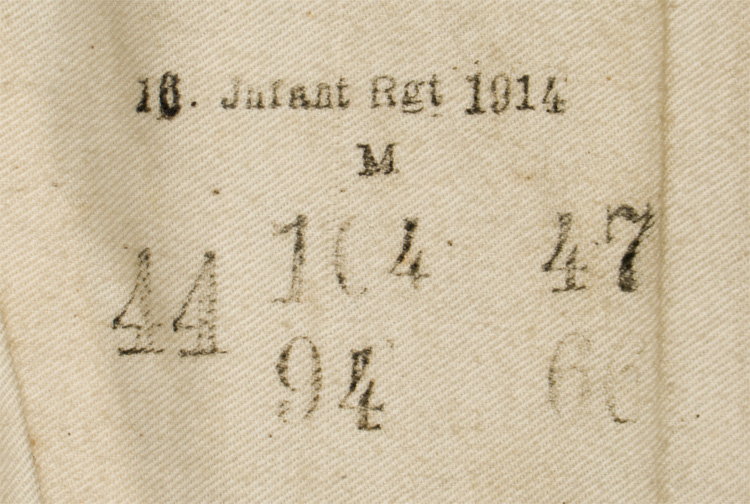 16. Infant Rgt 1914
M
44 104 47
94 66